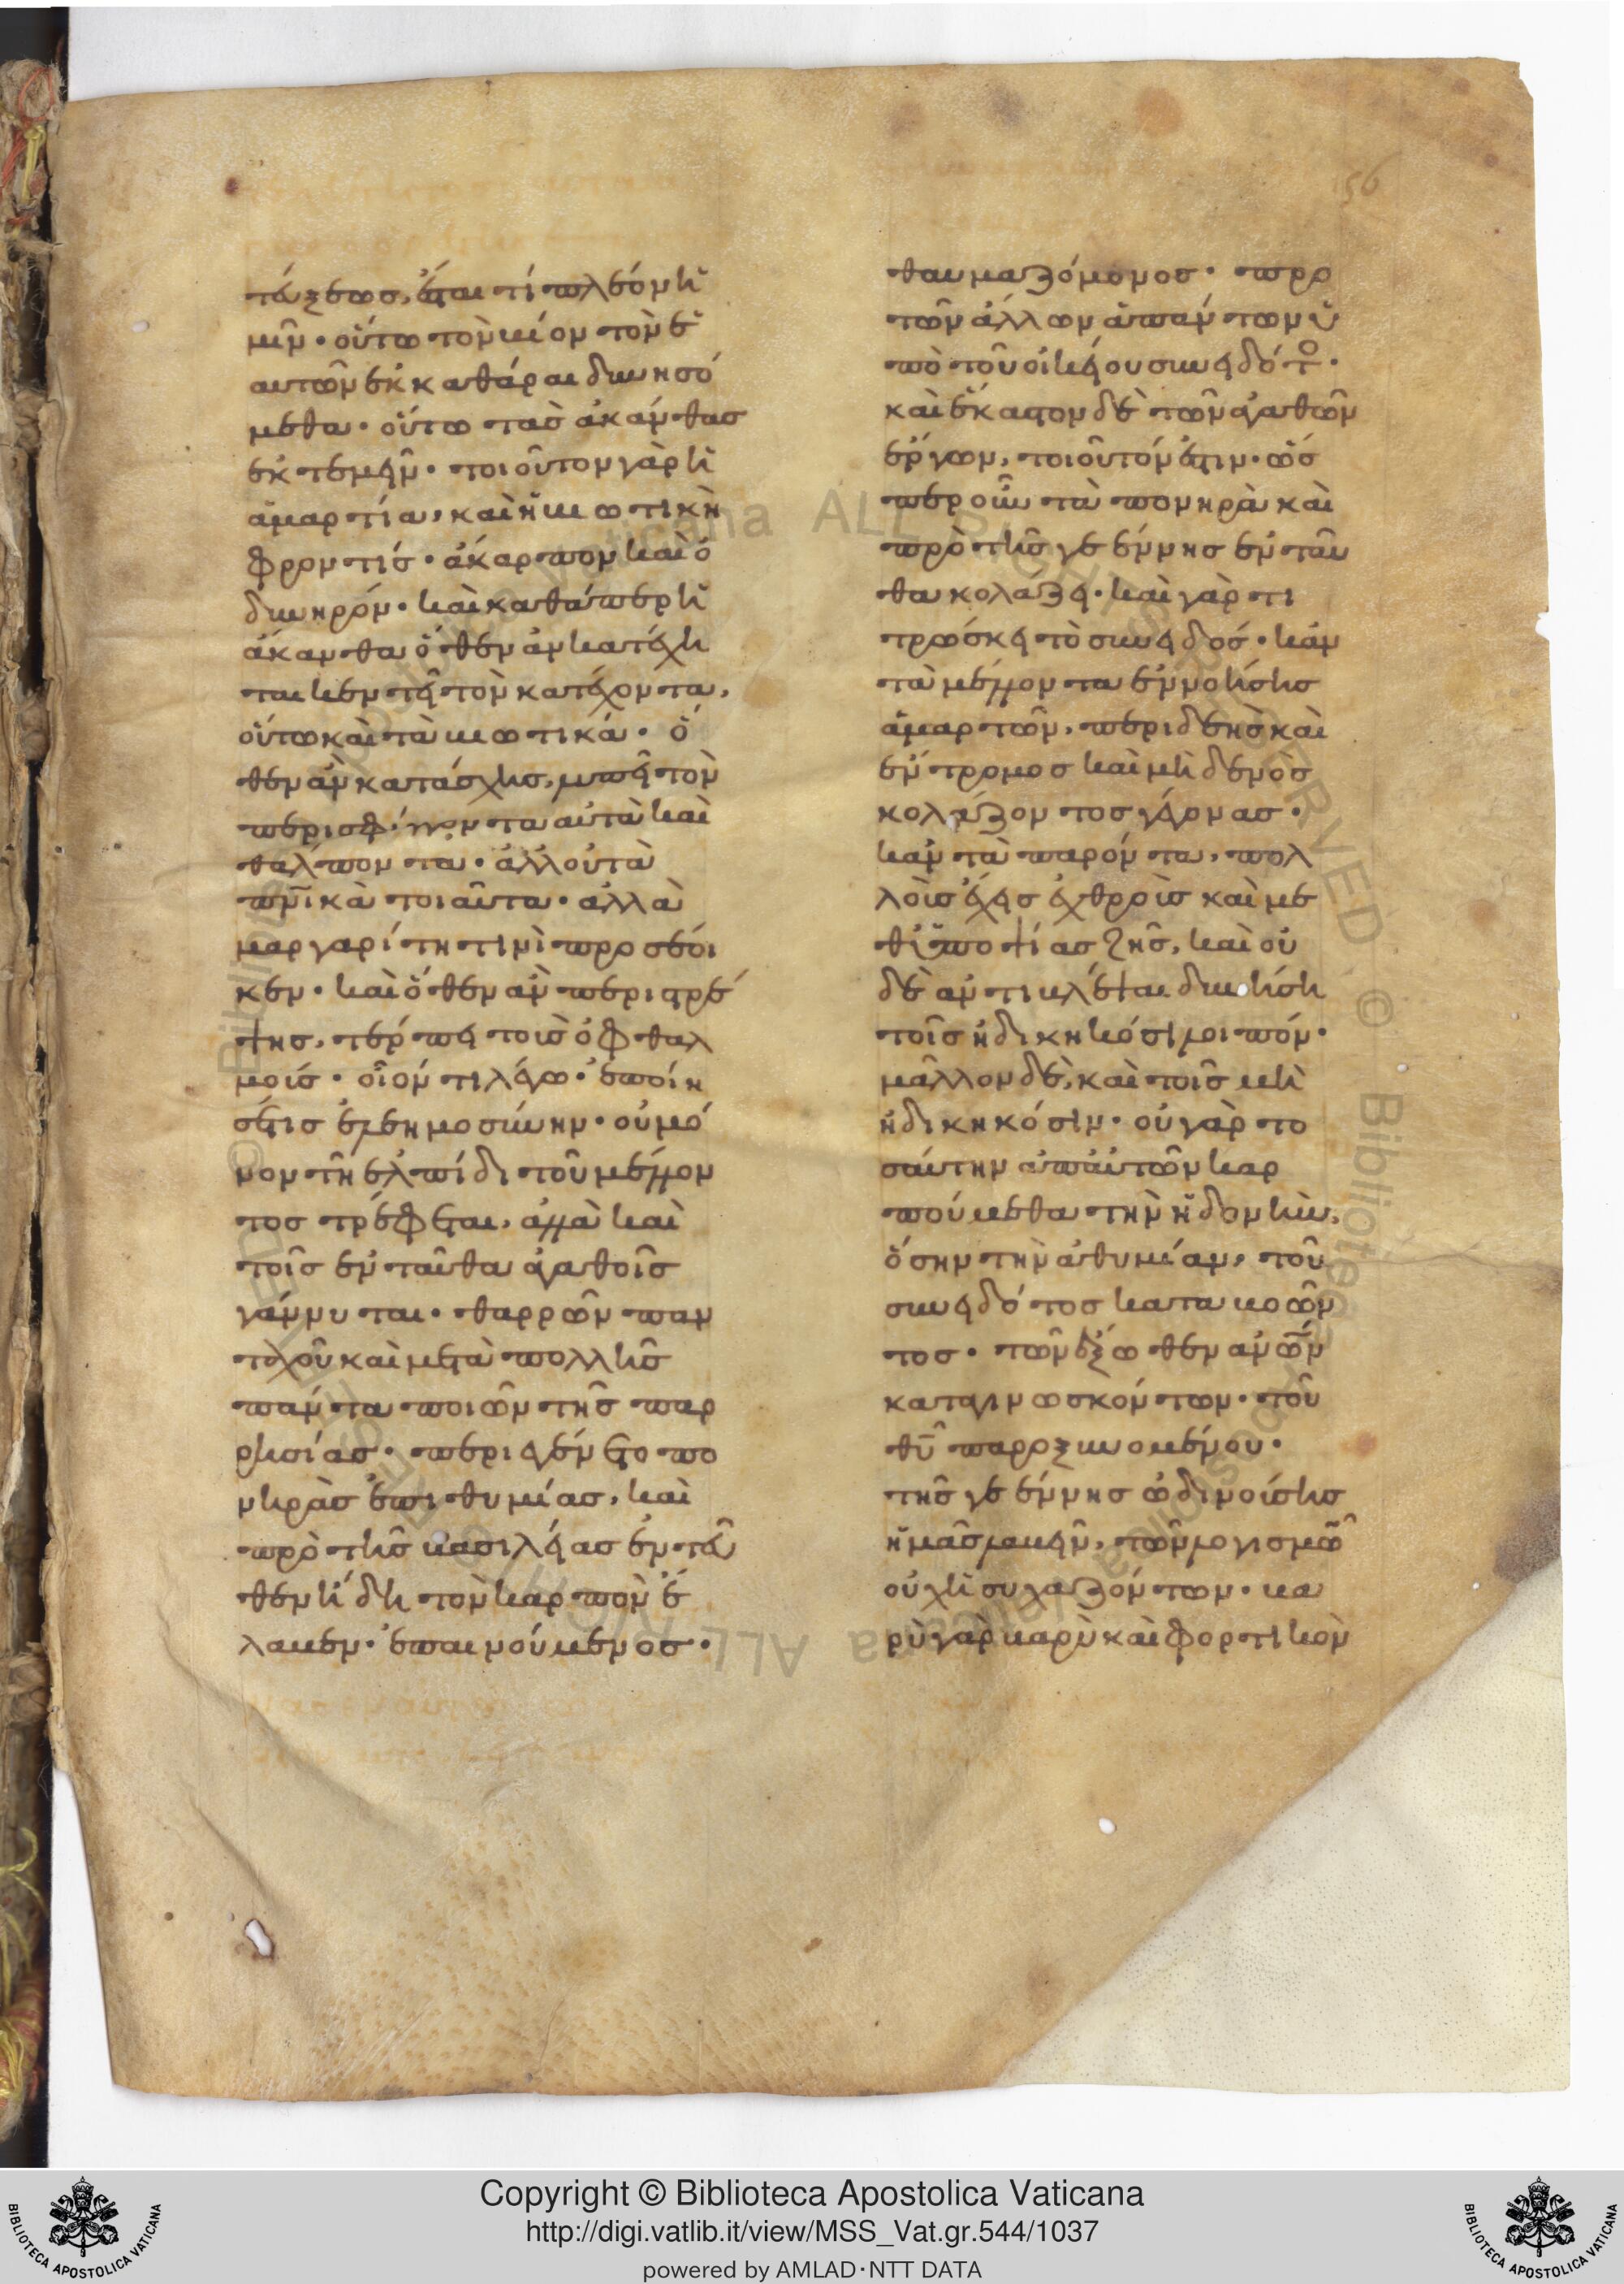 156
τάξεως, ἔσται τί πλέον ἡ
μῖν· οὕτω τὸν βίον τὸν ἑ
αυτῶν ἐκκαθάραι δυνησό
μεθα· οὕτω τὰς ἀκάνθας
ἐκτεμεῖν· τοιοῦτον γὰρ ἡ
ἁμαρτία, καὶ ἡ βιωτικὴ
φροντίς· ἄκαρπον καὶ ὀ
δυνηρόν· καὶ καθάπερ ἡ
ἄκανθα ὅθεν ἂν κατέχη
ται κεντεῖ τὸν κατέχοντα,
οὕτω καὶ τὰ βιωτικά· ὅ
θεν ἂν κατάσχῃς, λυπεῖ τὸν
περισφίγγοντα αὐτὰ καὶ
θάλποντα· ἀλλ' οὐ τὰ
πνικὰ τοιαῦτα· ἀλλὰ
μαργαρίτη τινὶ προσέοι
κεν· καὶ ὅθεν ἂν περιστρέ
ψης, τέρπει τοῖς ὀφθαλ
μοῖς· οἷόν τι λέγω· ἐποίη
σέ τις ἐλεημοσύνην· οὐ μό
νον τῆ ἐλπίδι τοῦ μέλλον
τος τρέφεται, ἀλλὰ καὶ
τοῖς ἐνταῦθα ἀγαθοῖς
γάννυται· θαρρῶν παν
ταχοῦ καὶ μετὰ πολλῆς
πάντα ποιῶν τῆς παρ
ρησίας· περιεγένετο πο
νηρᾶς ἐπιθυμίας, καὶ
πρὸ τῆς βασιλείας ἐντεῦ
θεν ἤδη τὸν καρπὸν ἔ
λαβεν· ἐπαινούμενος·
θαυμαζόμενος· πρὸ
τῶν ἄλλων ἁπάντων ὑ
πὸ τοῦ οἰκείου συνειδότος·
καὶ ἕκαστον δὲ τῶν ἀγαθῶν
ἔργων, τοιοῦτόν ἐστιν· ὥσ
περ οὖν τὰ πονηρὰ καὶ
πρὸ τῆς γεέννης ἐνταῦ
θα κολάζει· καὶ γὰρ τι
τρώσκει τὸ συνειδός· κἂν
τὰ μέλλοντα ἐννοήσῃς
ἁμαρτῶν, περιδεὴς καὶ
ἔντρομος καὶ μηδενὸς
κολάζοντος γέγονας·
κἂν τὰ παρόντα, πολ
λοὺς ἔχεις ἐχθροὺς καὶ με
θ' ὑποψίας ζῆς, καὶ οὐ
δὲ ἀντιβλέψαι δυνήσῃ
τοῖς ἠδικηκόσι λοιπόν·
μᾶλλον δὲ, καὶ τοῖς μὴ
ἠδικηκόσιν· οὐ γὰρ το
σαύτην ἀπ' αὐτῶν καρ
πούμεθα τὴν ἡδονὴν,
ὅσην τὴν ἀθυμίαν, τοῦ
συνειδότος καταβοῶν
τος· τῶν ἔξωθεν ἀνῶν
καταγινωσκόντων· τοῦ
θυ παροξυνομένου·
τῆς γεέννης ὠδινούσης
ἡμᾶς λαβεῖν, τῶν λογισμῶν
οὐχ ἡσυχαζόντων· βα
ρὺ γὰρ βαρὺ καὶ φορτικὸν
Copyright © Biblioteca Apostolica Vaticana
http://digi.vatlib.it/view/MSS_Vat.gr.544/1037
powered by AMLAD·NTT DATA
BIBLIOTECA APOSTOLICA VATICANA
BIBLIOTECA APOSTOLICA VATICANA